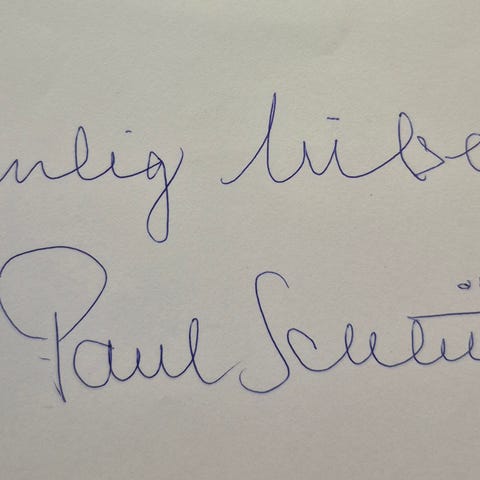 nlig hilse
Paul Schlü